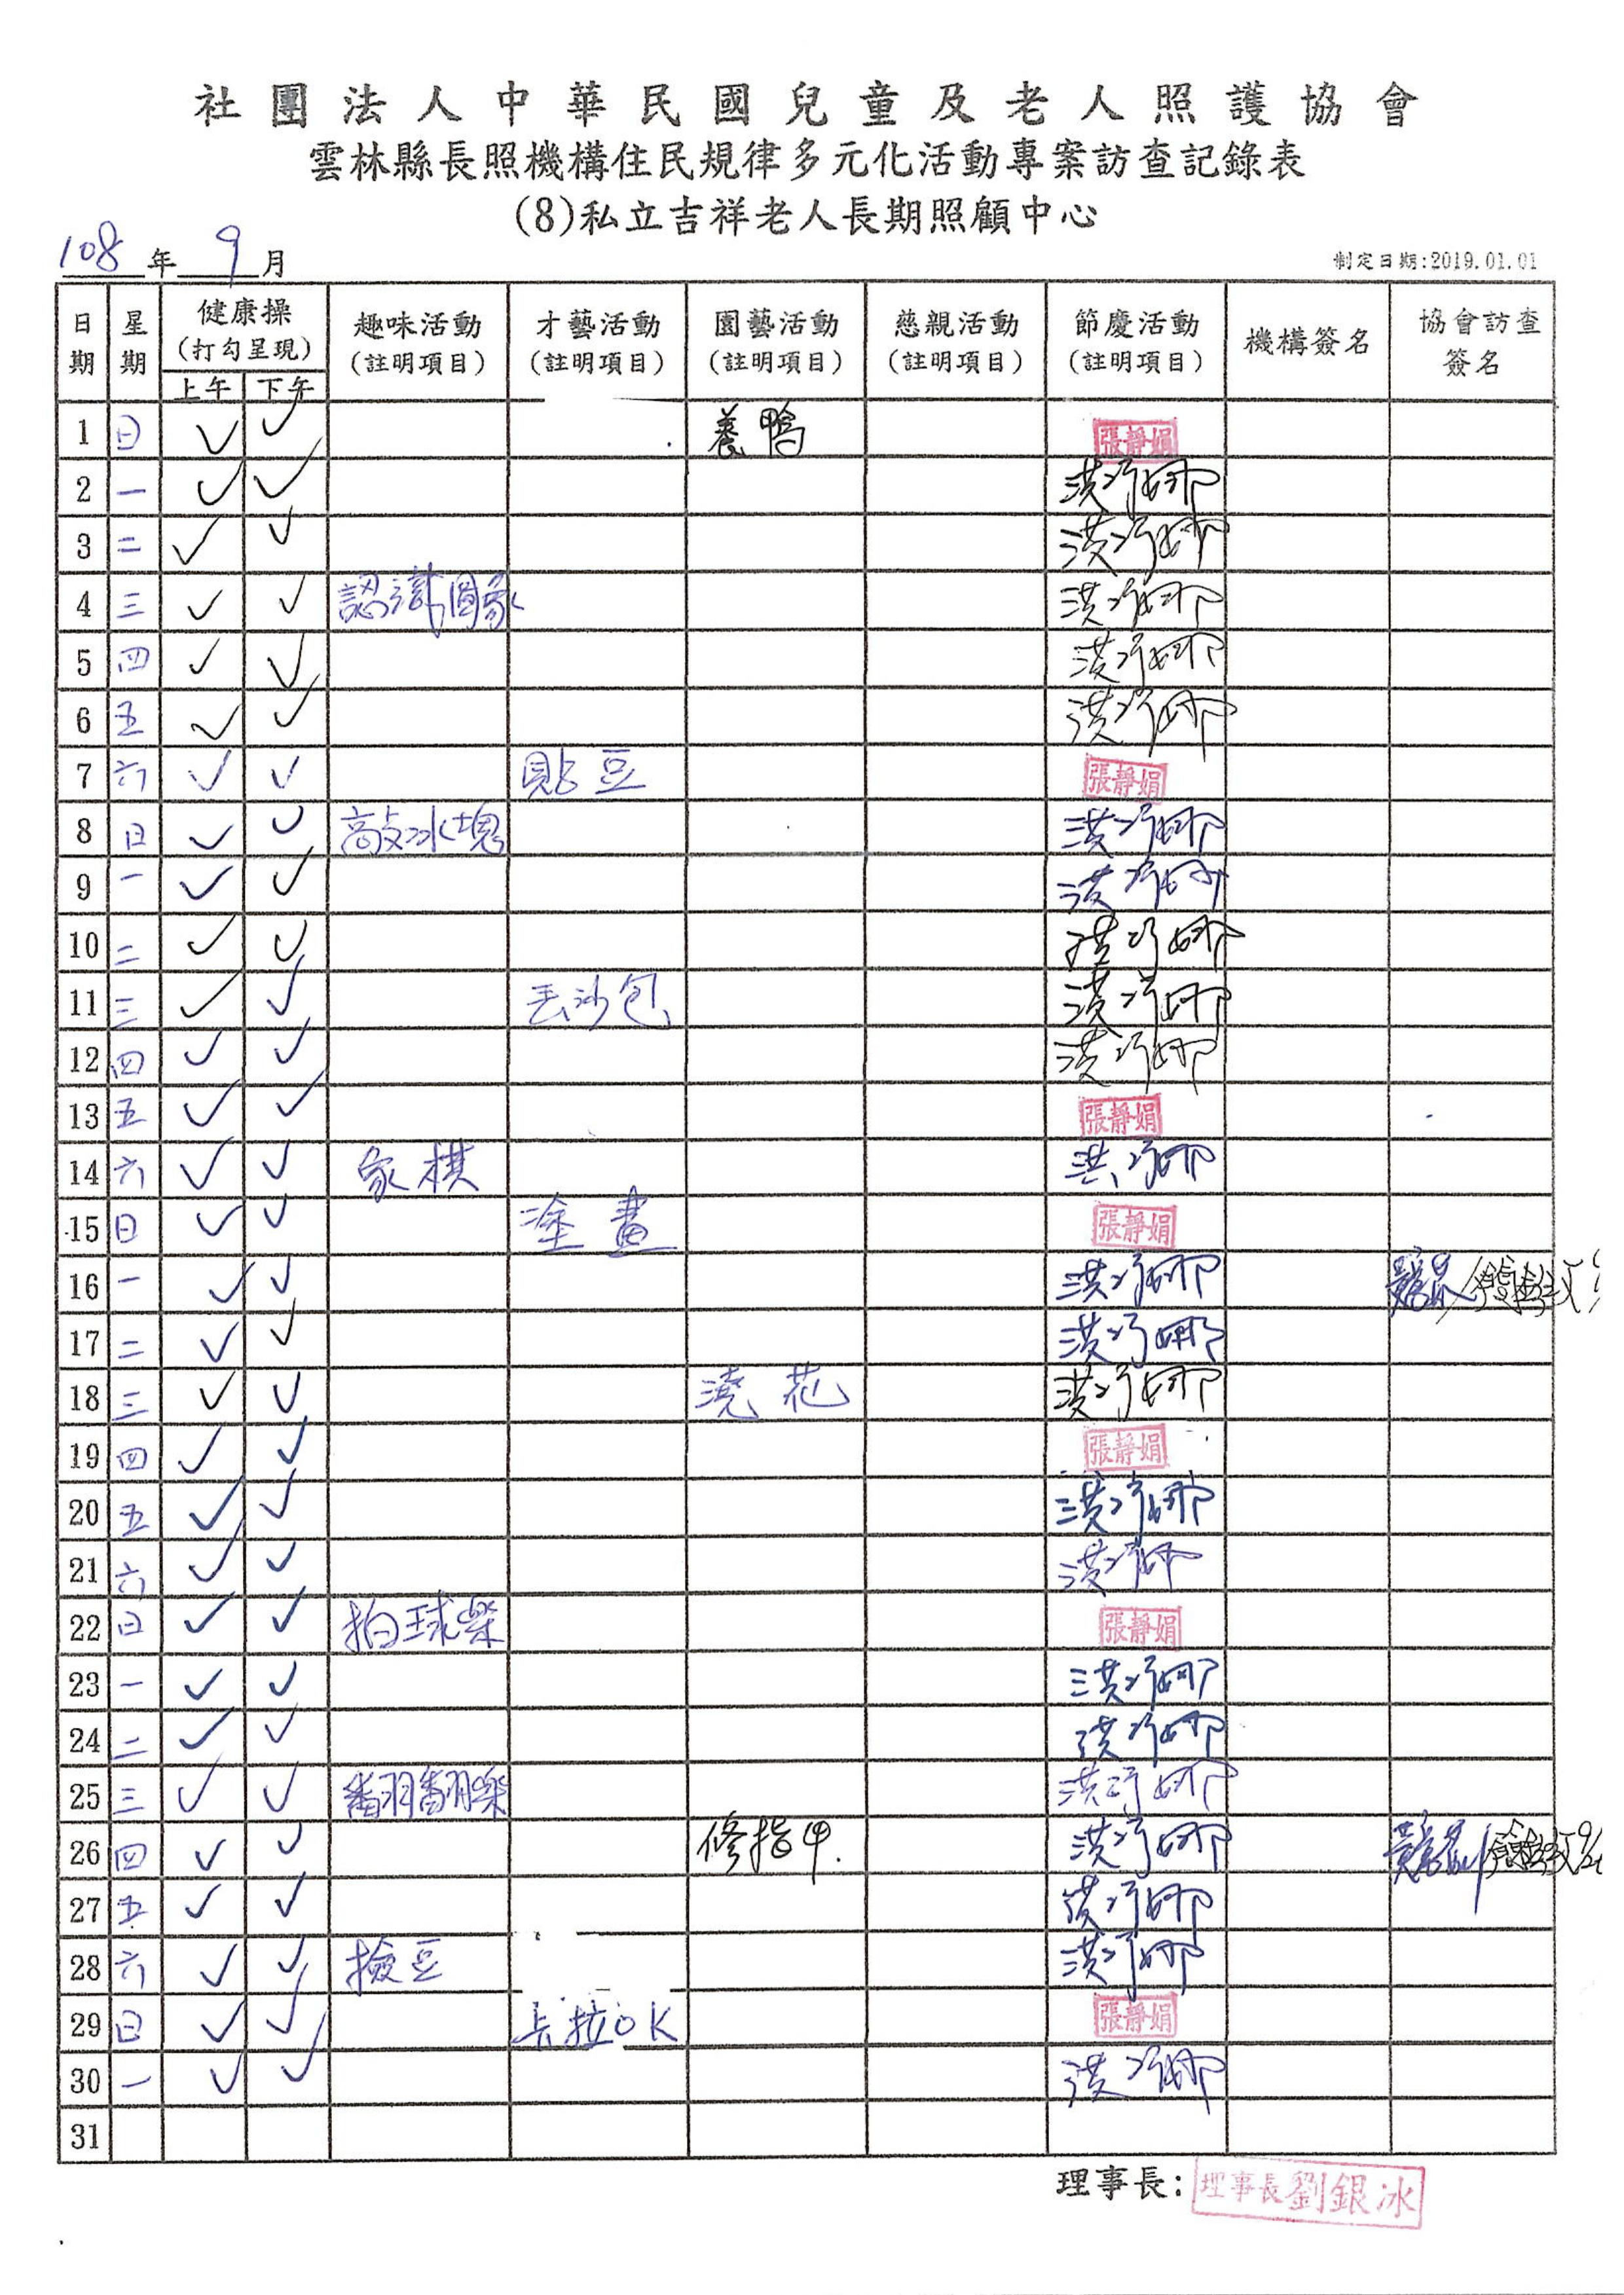 社團法人中華民國兒童及老人照護協會
雲林縣長照機構住民規律多元化活動專案訪查記錄表
(8)私立吉祥老人長期照顧中心
108年9月
制定日期:2019.01.01
日期 星期 健康操(打勾呈現) 上午 下午 趣味活動(註明項目) 才藝活動(註明項目) 園藝活動(註明項目) 慈親活動(註明項目) 節慶活動(註明項目) 機構簽名 協會訪查簽名
1 日 ✓ ✓ 養鴨 張靜娟
2 一 ✓ ✓ 洪
3 二 ✓ ✓ 洪
4 三 ✓ ✓ 認識圖象 洪
5 四 ✓ ✓ 洪
6 五 ✓ ✓ 洪
7 六 ✓ ✓ 貼豆 張靜娟
8 日 ✓ ✓ 敲冰塊 洪
9 一 ✓ ✓ 洪
10 二 ✓ ✓ 洪
11 三 ✓ ✓ 丟沙包 洪
12 四 ✓ ✓ 洪
13 五 ✓ ✓ 張靜娟
14 六 ✓ ✓ 象棋 洪
15 日 ✓ ✓ 塗畫 張靜娟
16 一 ✓ ✓ 洪
17 二 ✓ ✓ 洪
18 三 ✓ ✓ 澆花 洪
19 四 ✓ ✓ 張靜娟
20 五 ✓ ✓ 洪
21 六 ✓ ✓ 洪
22 日 ✓ ✓ 拍球樂 張靜娟
23 一 ✓ ✓ 洪
24 二 ✓ ✓ 洪
25 三 ✓ ✓ 翻翻樂 洪
26 四 ✓ ✓ 修指甲. 洪
27 五 ✓ ✓ 洪
28 六 ✓ ✓ 撿豆 洪
29 日 ✓ ✓ 卡拉OK 張靜娟
30 一 ✓ ✓ 洪
31
理事長: 理事長劉銀冰